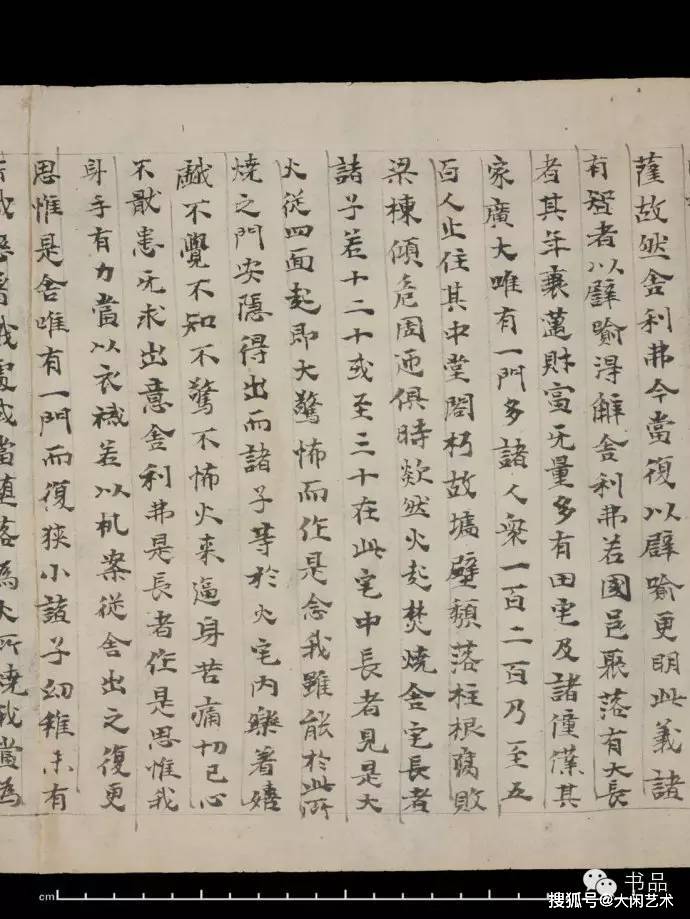 薩故然舍利弗今當復以譬喻更明此義諸
有智者以譬喻得解舍利弗若國邑聚落有大長
者其年衰邁財富无量多有田宅及諸僮僕其
家廣大唯有一門多諸人衆一百二百乃至五
百人止住其中堂閣朽故墻壁頹落柱根腐敗
梁棟傾危周迊俱時欻然火起焚燒舍宅長者
諸子若十二十或至三十在此宅中長者見是大
火從四面起即大驚怖而作是念我雖能於此所
燒之門安隱得出而諸子等於火宅內樂着嬉
戲不覺不知不驚不怖火来逼身苦痛切己心
不猒患无求出意舍利弗是長者作是思惟我
身手有力當以衣裓若以机案從舍出之復更
思惟是舍唯有一門而復狹小諸子幼稚未有
所識戀著戲處或當墮落為火所燒我當為
cm
书品
搜狐号@大闲艺术